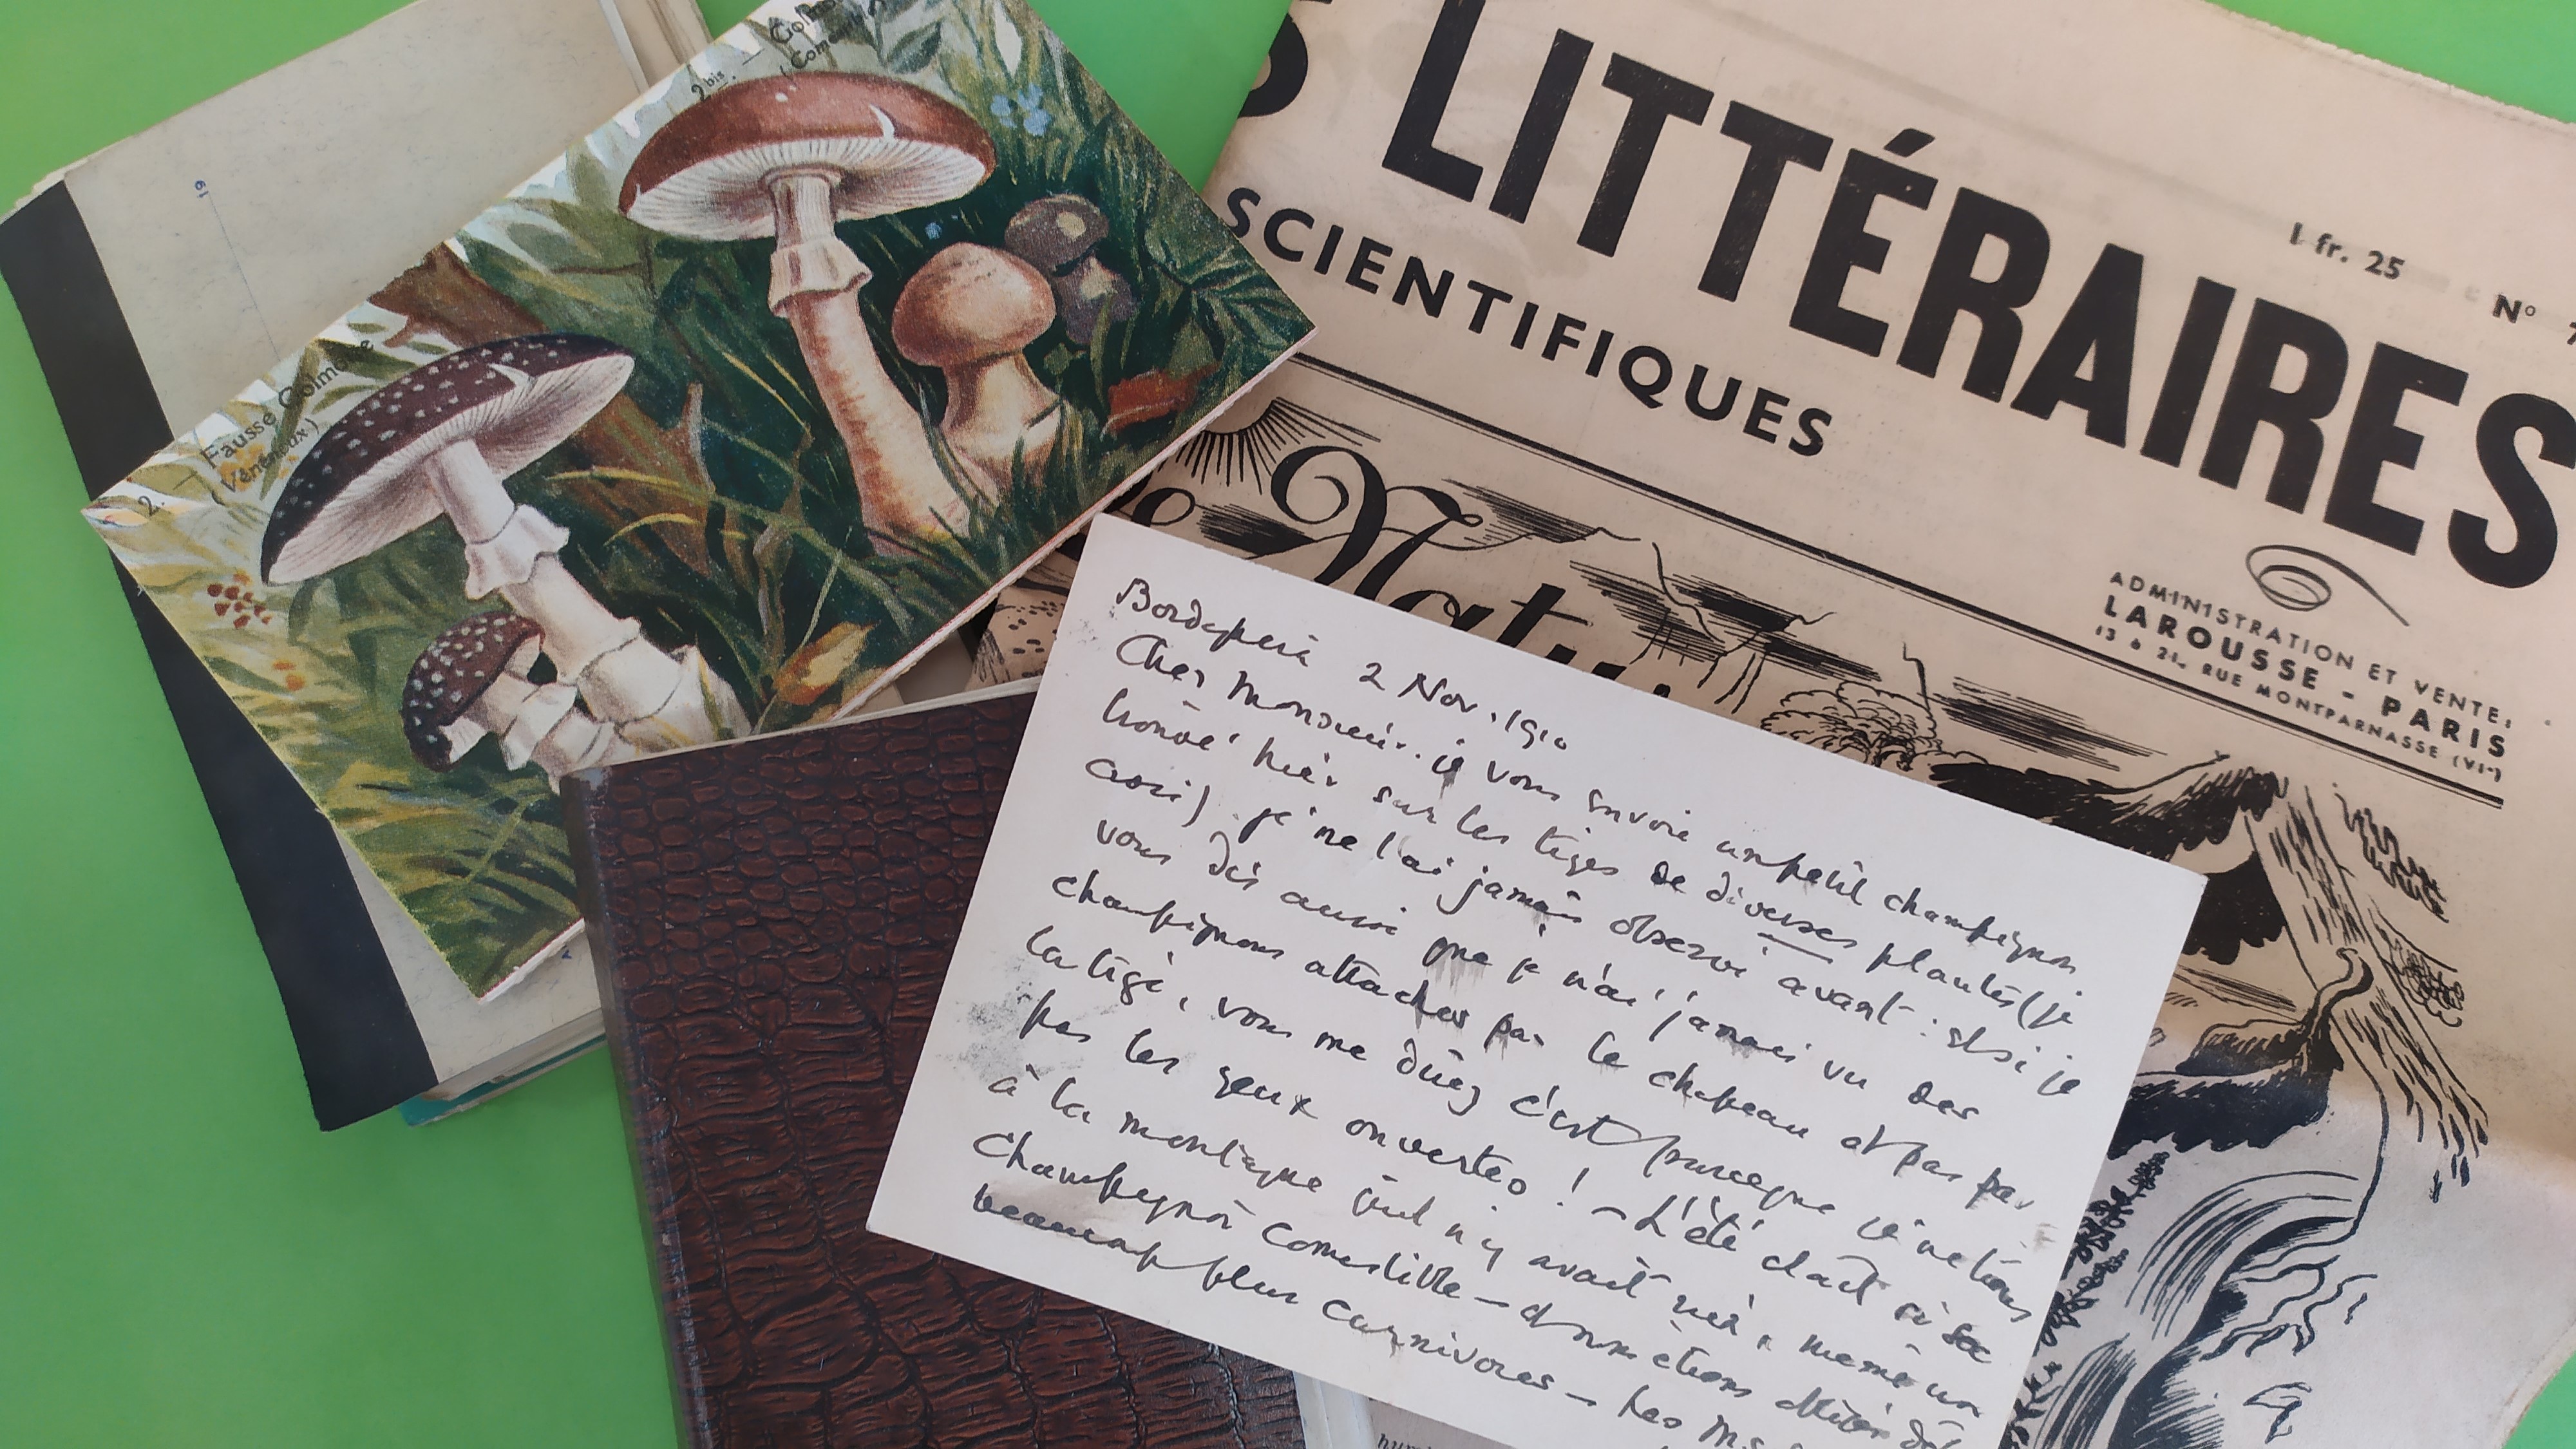 2 bis. —
(Com
2. — Fausse Golm
(Vénéneux)
S LITTÉRAIRES
SCIENTIFIQUES
1 fr. 25
N° 7
ADMINISTRATION ET VENTE:
LAROUSSE - PARIS
13 à 21, RUE MONTPARNASSE (VIe)
Natu
2 Nov. 1910
Cher Monsieur. je vous envoie un petit champignon
trouvé hier sur les tiges de diverses plantes (je
crois) je ne l'ai jamais observé avant : et si je
vous dis aussi que je n'ai jamais vu des
champignons attachés par le chapeau et pas par
la tige, vous me direz c'est parceque je ne tiens
pas les yeux ouvertes ! — L'été etait si sec
à la montagne qu'il n'y avait rien, meme un
Champignon comestible — nous étions
beaucoup plus carnivores — Les